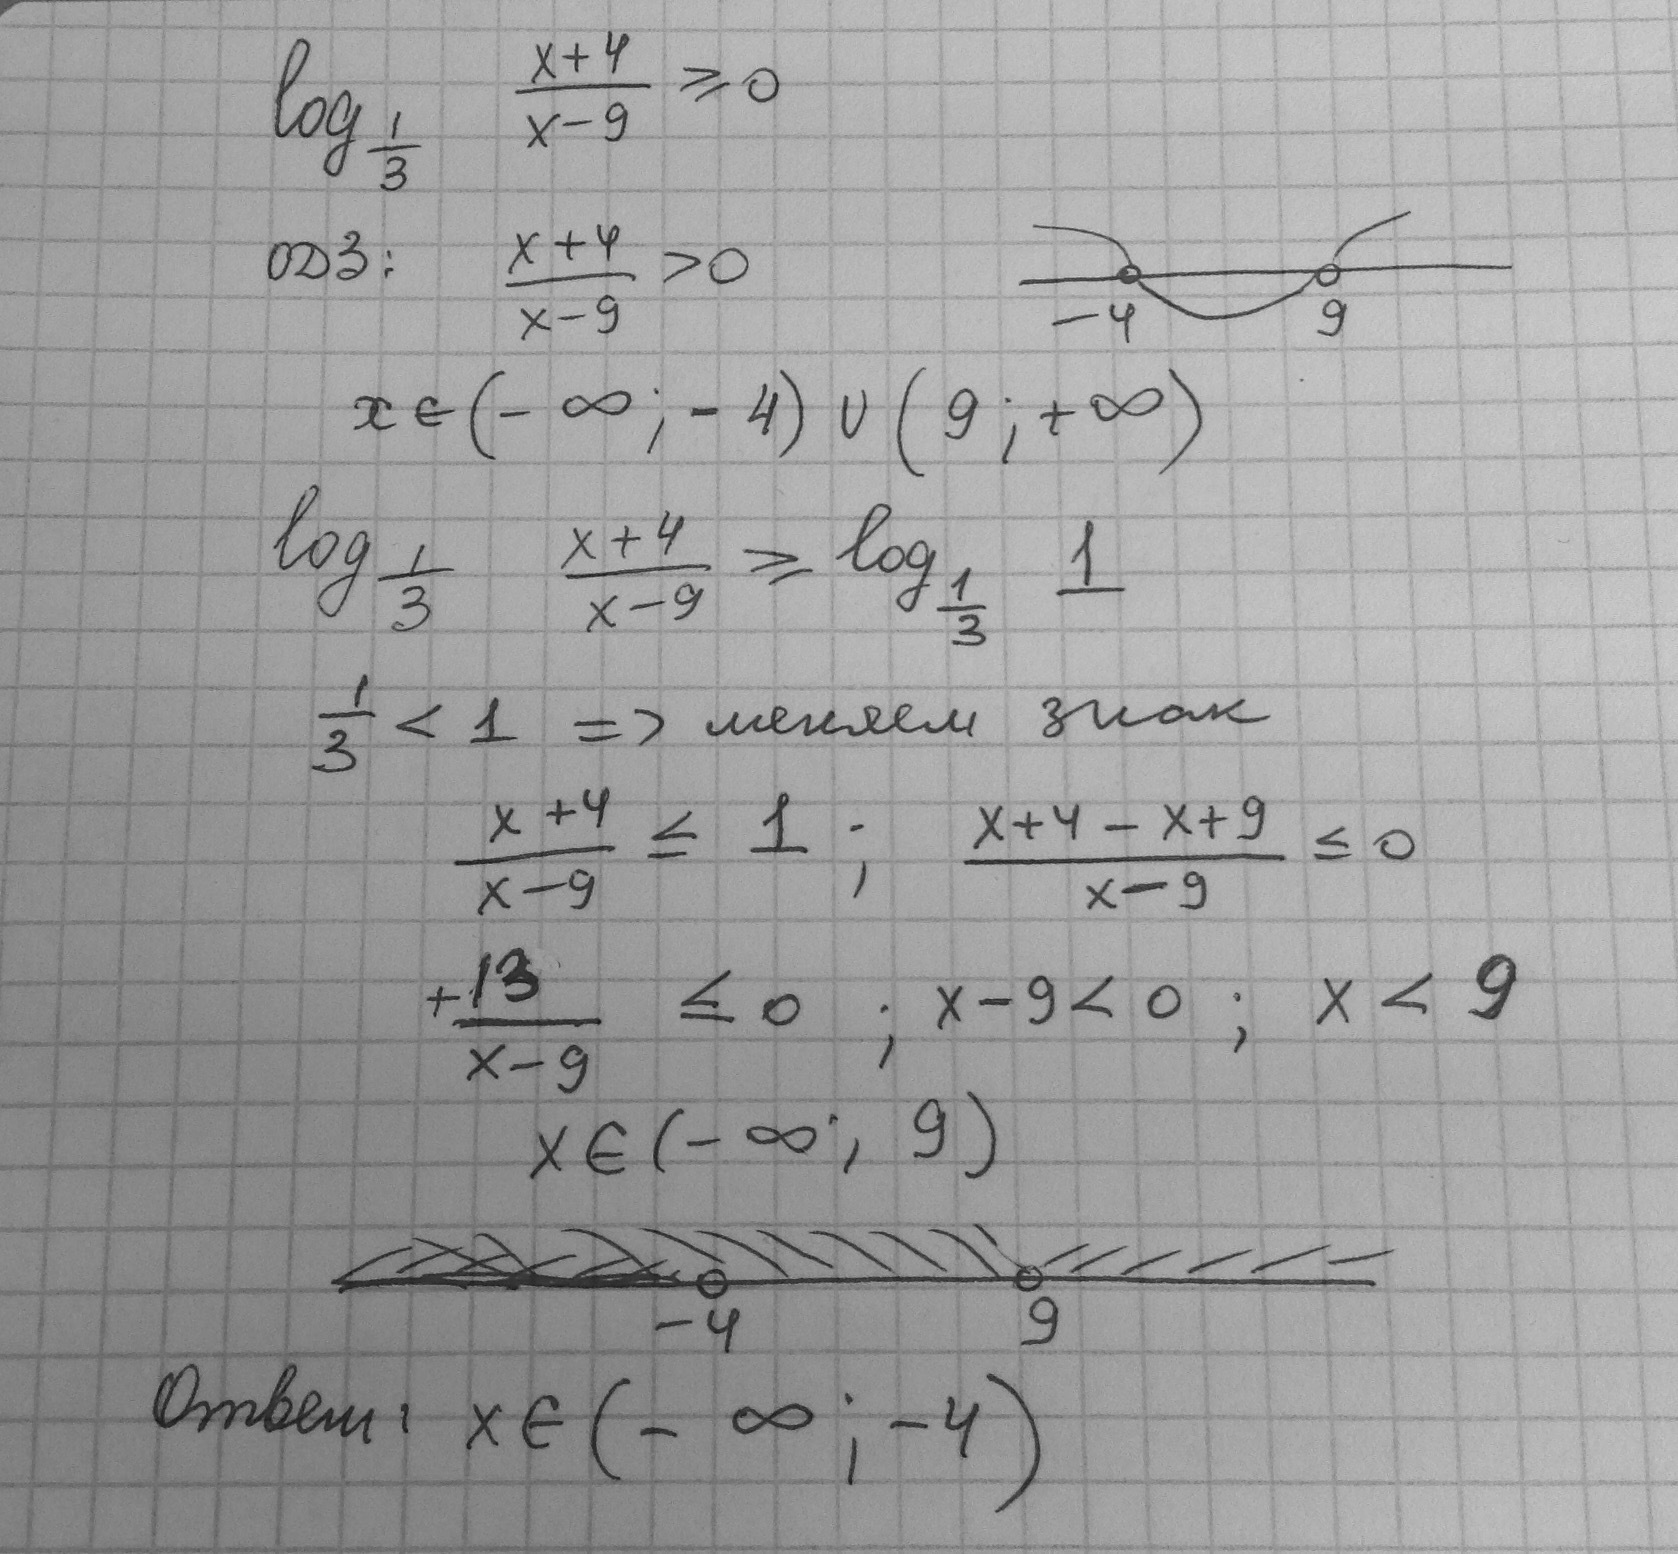 log_{1/3} (x+4)/(x-9) ≥ 0
ОДЗ: (x+4)/(x-9) > 0
-4 9
x ∈ (-∞; -4) ∪ (9; +∞)
log_{1/3} (x+4)/(x-9) ≥ log_{1/3} 1
1/3 < 1 => меняем знак
(x+4)/(x-9) ≤ 1; (x+4-x+9)/(x-9) ≤ 0
+13/(x-9) ≤ 0; x-9 < 0; x < 9
x ∈ (-∞; 9)
-4 9
Ответ: x ∈ (-∞; -4)